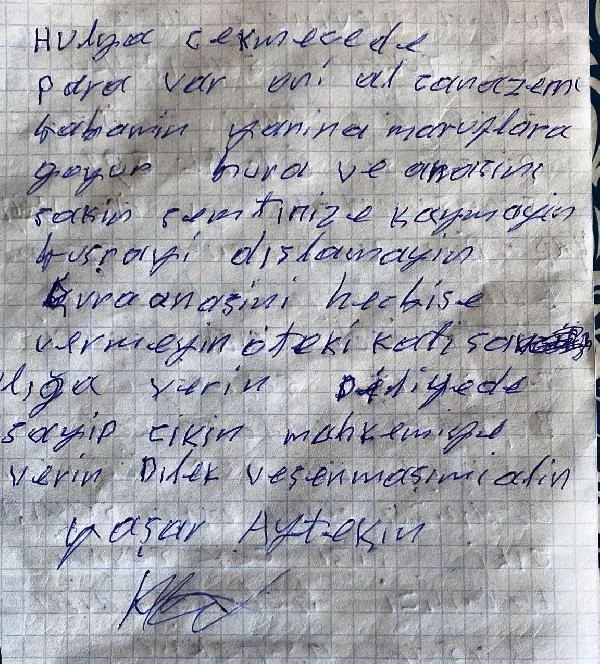 Hulya cekmecede
para var oni al canazemi
babamin yanina maruflara
goyun bura ve anasini
sakin semtinize kaymayin
tusrayi dişlamayin
kura anaşini heçbişe
vermeyin öteki kati
liğa verin Deliyede
sayip cikin mahkemiye
verin Dilek veşenmaşimi alin
yaşar Aytekin